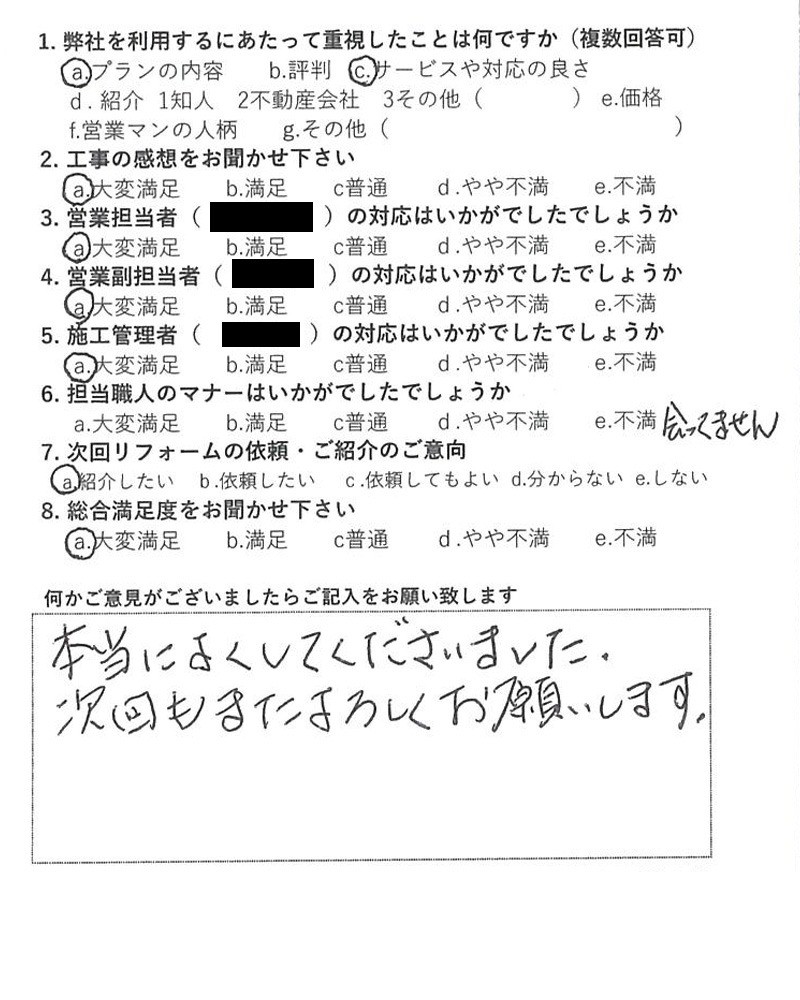 1. 弊社を利用するにあたって重視したことは何ですか（複数回答可）
a.プランの内容　b.評判　c.サービスや対応の良さ
d. 紹介 1知人 2不動産会社 3その他（　　　）e.価格
f.営業マンの人柄　g.その他（　　　　　　　　）
2. 工事の感想をお聞かせ下さい
a.大変満足　b.満足　c普通　d.やや不満　e.不満
3. 営業担当者（　　　）の対応はいかがでしたでしょうか
a.大変満足　b.満足　c普通　d.やや不満　e.不満
4. 営業副担当者（　　　）の対応はいかがでしたでしょうか
a.大変満足　b.満足　c普通　d.やや不満　e.不満
5. 施工管理者（　　　）の対応はいかがでしたでしょうか
a.大変満足　b.満足　c普通　d.やや不満　e.不満
6. 担当職人のマナーはいかがでしたでしょうか
a.大変満足　b.満足　c普通　d.やや不満　e.不満 会ってません
7. 次回リフォームの依頼・ご紹介のご意向
a.紹介したい　b.依頼したい　c.依頼してもよい d.分からない e.しない
8. 総合満足度をお聞かせ下さい
a.大変満足　b.満足　c普通　d.やや不満　e.不満
何かご意見がございましたらご記入をお願い致します
本当によくしてくださいました.
次回もまたよろしくお願いします.